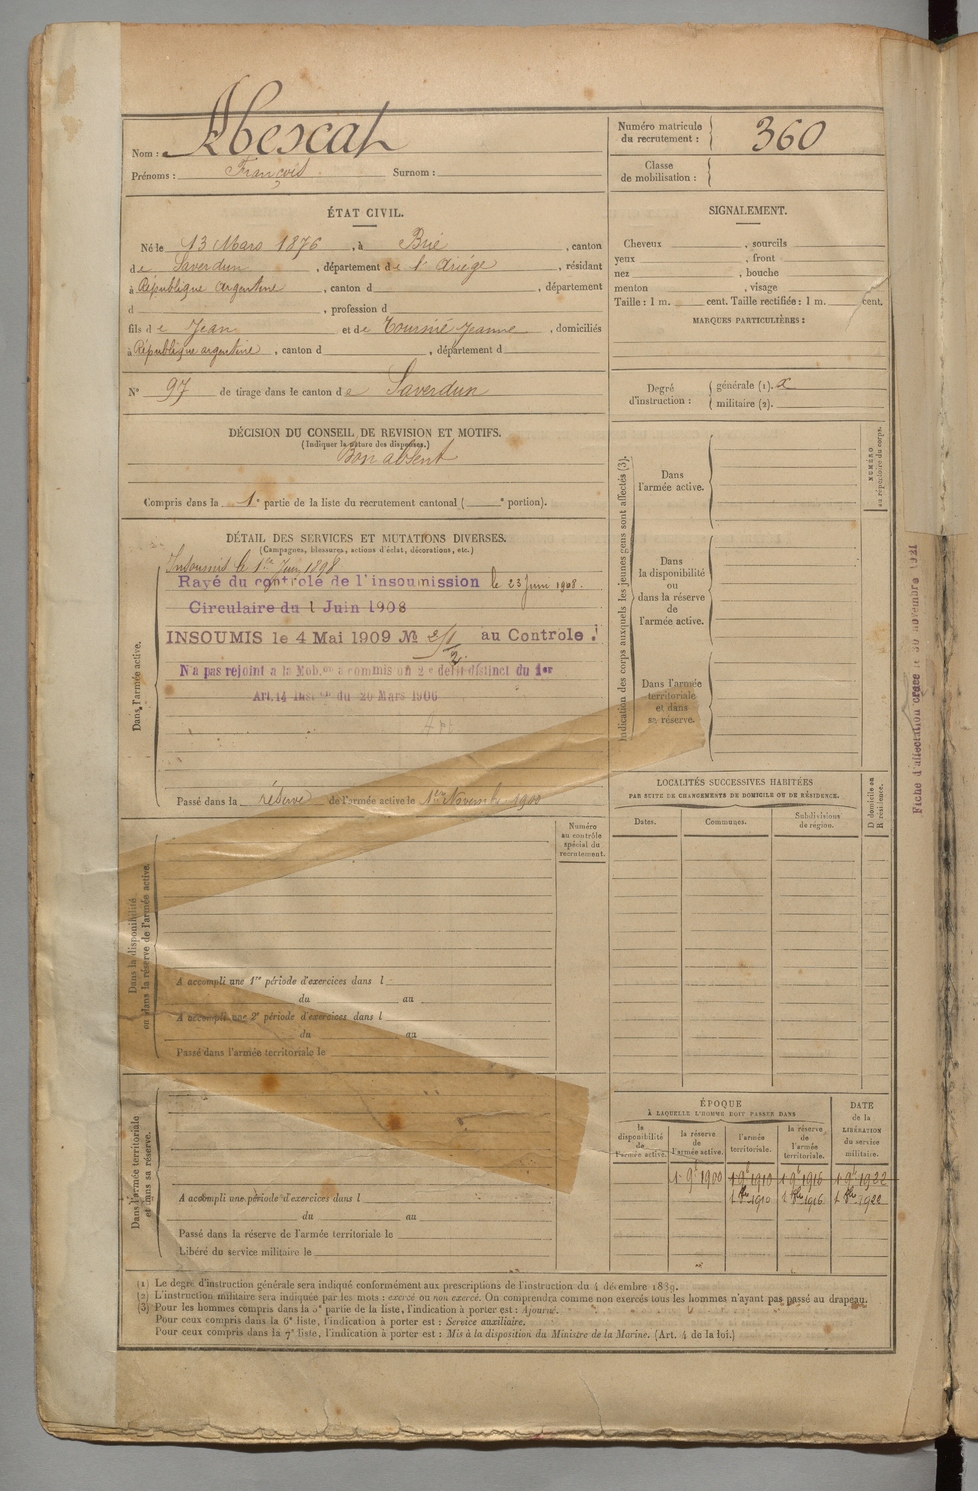 Nom : Abescat
Prénoms : François Surnom :
Numéro matricule du recrutement : 360
Classe de mobilisation :
ÉTAT CIVIL.
Né le 13 Mars 1876, à Brie, canton
de Saverdun, département de l'Ariége, résidant
à République Argentine, canton d , département
d , profession d
fils de Jean et de Tournié Jeanne, domiciliés
à République argentine, canton d , département d
N° 97 de tirage dans le canton de Saverdun
SIGNALEMENT.
Cheveux , sourcils
yeux , front
nez , bouche
menton , visage
Taille : 1 m. cent. Taille rectifiée : 1 m. cent.
MARQUES PARTICULIÈRES :
Degré d'instruction : générale (1). x
militaire (2).
DÉCISION DU CONSEIL DE REVISION ET MOTIFS.
(Indiquer la nature des dispenses.)
Bon absent
Compris dans la 1e partie de la liste du recrutement cantonal ( e portion).
DÉTAIL DES SERVICES ET MUTATIONS DIVERSES.
(Campagnes, blessures, actions d'éclat, décorations, etc.)
Dans l'armée active.
Insoumis le 1er Juin 1898
Rayé du controlé de l'insoumission le 23 Juin 1908.
Circulaire du 1 Juin 1908
INSOUMIS le 4 Mai 1909 № au Controle
N'a pas rejoint a la Mob.on a commis un 2e delit distinct du 1er
Art. 14 Inst.on du 20 Mars 1906
Passé dans la réserve de l'armée active le 1er Novembre 1900
Indication des corps auxquels les jeunes gens sont affectés (3).
Dans l'armée active.
Dans la disponibilité ou dans la réserve de l'armée active.
Dans l'armée territoriale et dans sa réserve.
NUMÉRO au répertoire du corps.
Fiche d'affectation créée le 30 novembre 1921
LOCALITÉS SUCCESSIVES HABITÉES
PAR SUITE DE CHANGEMENTS DE DOMICILE OU DE RÉSIDENCE.
Dates. Communes. Subdivisions de région. D domicile ou R résidence.
Numéro au contrôle spécial du recrutement.
Dans la disponibilité ou dans la réserve de l'armée active.
A accompli une 1re période d'exercices dans l
du au
A accompli une 2e période d'exercices dans l
du au
Passé dans l'armée territoriale le
Dans l'armée territoriale et dans sa réserve.
A accompli une période d'exercices dans l
du au
Passé dans la réserve de l'armée territoriale le
Libéré du service militaire le
ÉPOQUE
À LAQUELLE L'HOMME DOIT PASSER DANS
la disponibilité de l'armée active. la réserve de l'armée active. l'armée territoriale. la réserve de l'armée territoriale.
DATE de la LIBÉRATION du service militaire.
1 9e 1900 1 9e 1910 1 9e 1916 1 9e 1922
1 8bre 1910 1 8bre 1916 1 8bre 1922
(1) Le degré d'instruction générale sera indiqué conformément aux prescriptions de l'instruction du 4 décembre 1889.
(2) L'instruction militaire sera indiquée par les mots : exercé ou non exercé. On comprendra comme non exercés tous les hommes n'ayant pas passé au drapeau.
(3) Pour les hommes compris dans la 5e partie de la liste, l'indication à porter est : Ajourné.
Pour ceux compris dans la 6e liste, l'indication à porter est : Service auxiliaire.
Pour ceux compris dans la 7e liste, l'indication à porter est : Mis à la disposition du Ministre de la Marine. (Art. 4 de la loi.)